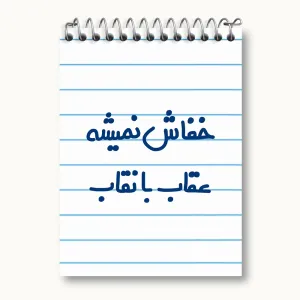 خفاش نمیشه
عقاب با نقاب